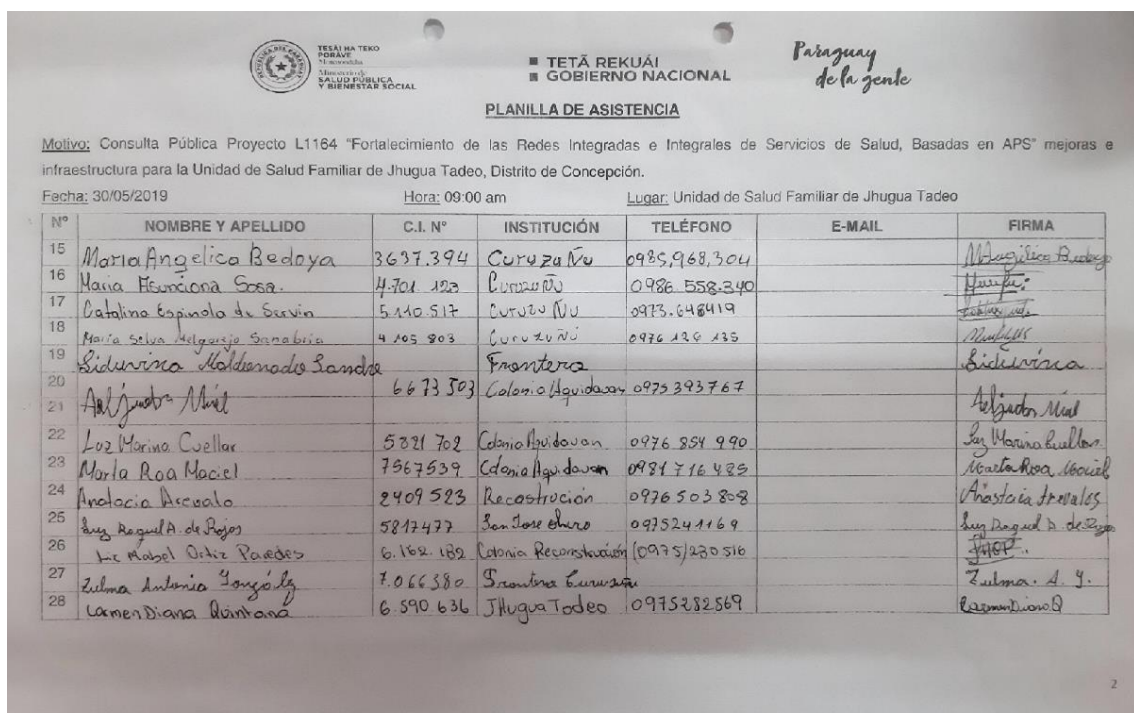 TESÃI HA TEKO
PORÃVE
Motenondeha
Ministerio de
SALUD PÚBLICA
Y BIENESTAR SOCIAL
TETÃ REKUÁI
GOBIERNO NACIONAL
Paraguay
de la gente
PLANILLA DE ASISTENCIA
Motivo: Consulta Pública Proyecto L1164 "Fortalecimiento de las Redes Integradas e Integrales de Servicios de Salud, Basadas en APS" mejoras e
infraestructura para la Unidad de Salud Familiar de Jhugua Tadeo, Distrito de Concepción.
Fecha: 30/05/2019 Hora: 09:00 am Lugar: Unidad de Salud Familiar de Jhugua Tadeo
Nº NOMBRE Y APELLIDO C.I. Nº INSTITUCIÓN TELÉFONO E-MAIL FIRMA
15 Maria Angelica Bedoya 3637.394 Curuzu Ñu 0985,968,304
16 Maria Asunciona Sosa. 4.701 123 Curuzu Ñu 0986 558.340
17 Catalina Espinola de Servin 5.110.517 Curuzu Ñu 0973.648419
18 Maria Selva Melgarejo Sanabria 4 105 803 Curuzu Ñú 0976 126 135
19 Siduvinca Maldonado Sandre Frontera Siduvinca
20 6673503 Colonia Aquidavan 0975393767
21
22 Luz Marina Cuellar 5821 702 Colonia Aquidavan 0976 854 990 Luz Marina Cuellar
23 Marta Roa Maciel 7567539 Colonia Aquidavan 0981 716 485 Marta Roa Maciel
24 Anatacia Arevalo 2409523 Recostrución 0976 503 808
25 Luz Raquel A. de Rojos 5817477 San Jose 0975241169 Luz Raquel A. de
26 Liz Mabel Ortiz Paredes 6.162.182 Colonia Reconstrucción (0975)230516
27 Zulma Antonia 7.066380 Frontera Zulma. A. G.
28 Carmen Diana Quintana 6.590 636 JHugua Tadeo 0975282569 Carmen Diana Q
2